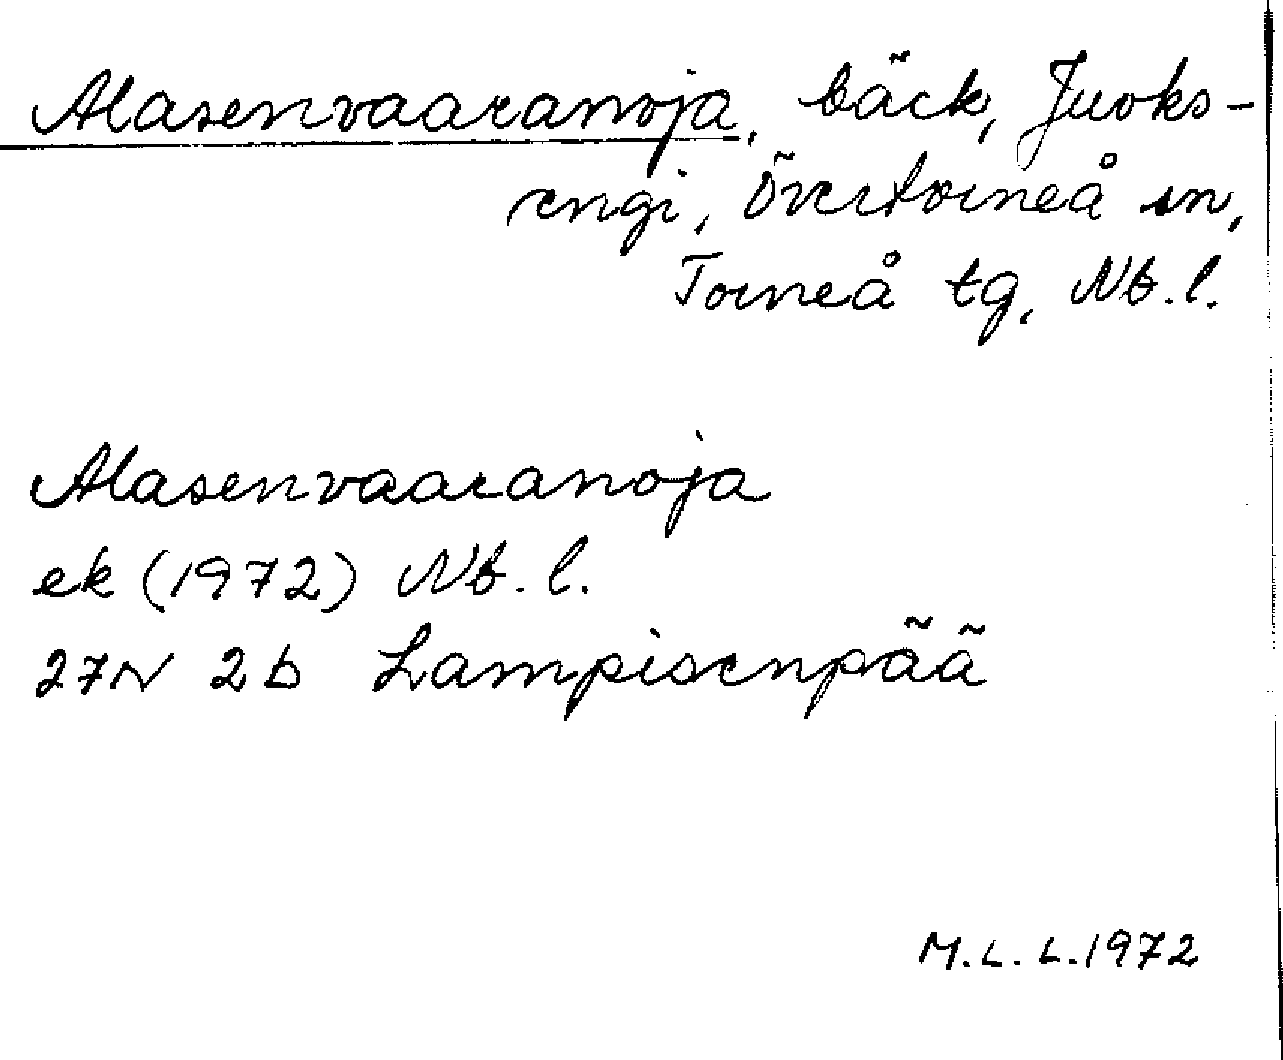 Alasenvaaranoja, bäck, Juoks-
engi, Övertorneå sn,
Torneå tg, Nb. l.
Alasenvaaranoja
ek (1972) Nb. l.
27N 2b Lampisenpää
M. L. L. 1972